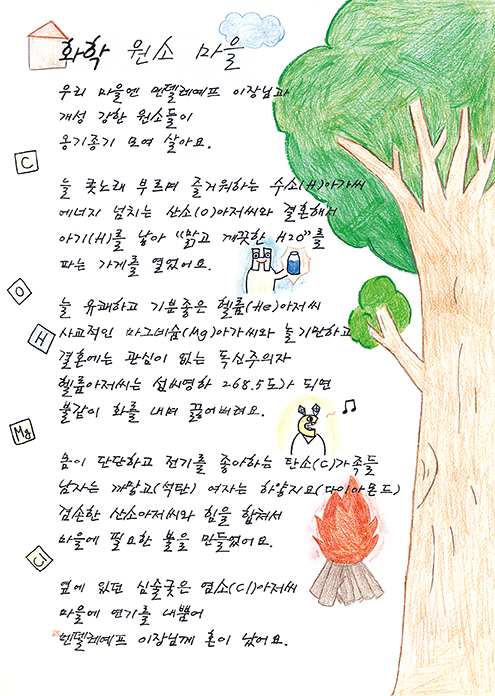 화학 원소 마을
우리 마을엔 멘델레예프 이장님과
개성 강한 원소들이
옹기종기 모여 살아요.
C
늘 콧노래 부르며 즐거워하는 수소(H)아가씨
에너지 넘치는 산소(O)아저씨와 결혼해서
아기(H)를 낳아 "맑고 깨끗한 H2O"를
파는 가게를 열었어요.
O
늘 유쾌하고 기분좋은 헬륨(He)아저씨
H
사교적인 마그네슘(Mg)아가씨와 놀기만하고
결혼에는 관심이 없는 독신주의자
헬륨아저씨는 섭씨영하 268.5도가 되면
불같이 화를 내며 끓어버려요.
Mg
몸이 단단하고 전기를 좋아하는 탄소(C)가족들
남자는 까맣고(석탄) 여자는 하얗지요(다이아몬드)
겸손한 산소아저씨와 힘을 합쳐서
마을에 필요한 불을 만들었어요.
Cl
옆에 있던 심술궂은 염소(Cl)아저씨
마을에 연기를 내뿜어
멘델레예프 이장님께 혼이 났어요.